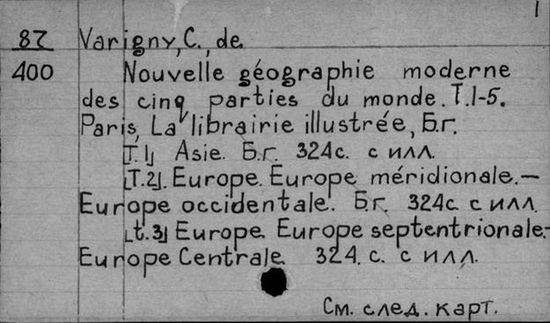 1
87 Varigny, C., de.
400 Nouvelle géographie moderne
des cinq parties du monde. T.1-5.
Paris, La librairie illustrée, Б.г.
[T.1] Asie. Б.г. 324с. с илл.
[T.2]. Europe. Europe méridionale.—
Europe occidentale. Б.г. 324с. с илл
[t.3] Europe. Europe septentrionale.-
Europe Centrale. 324. с. с илл.
См. след. карт.